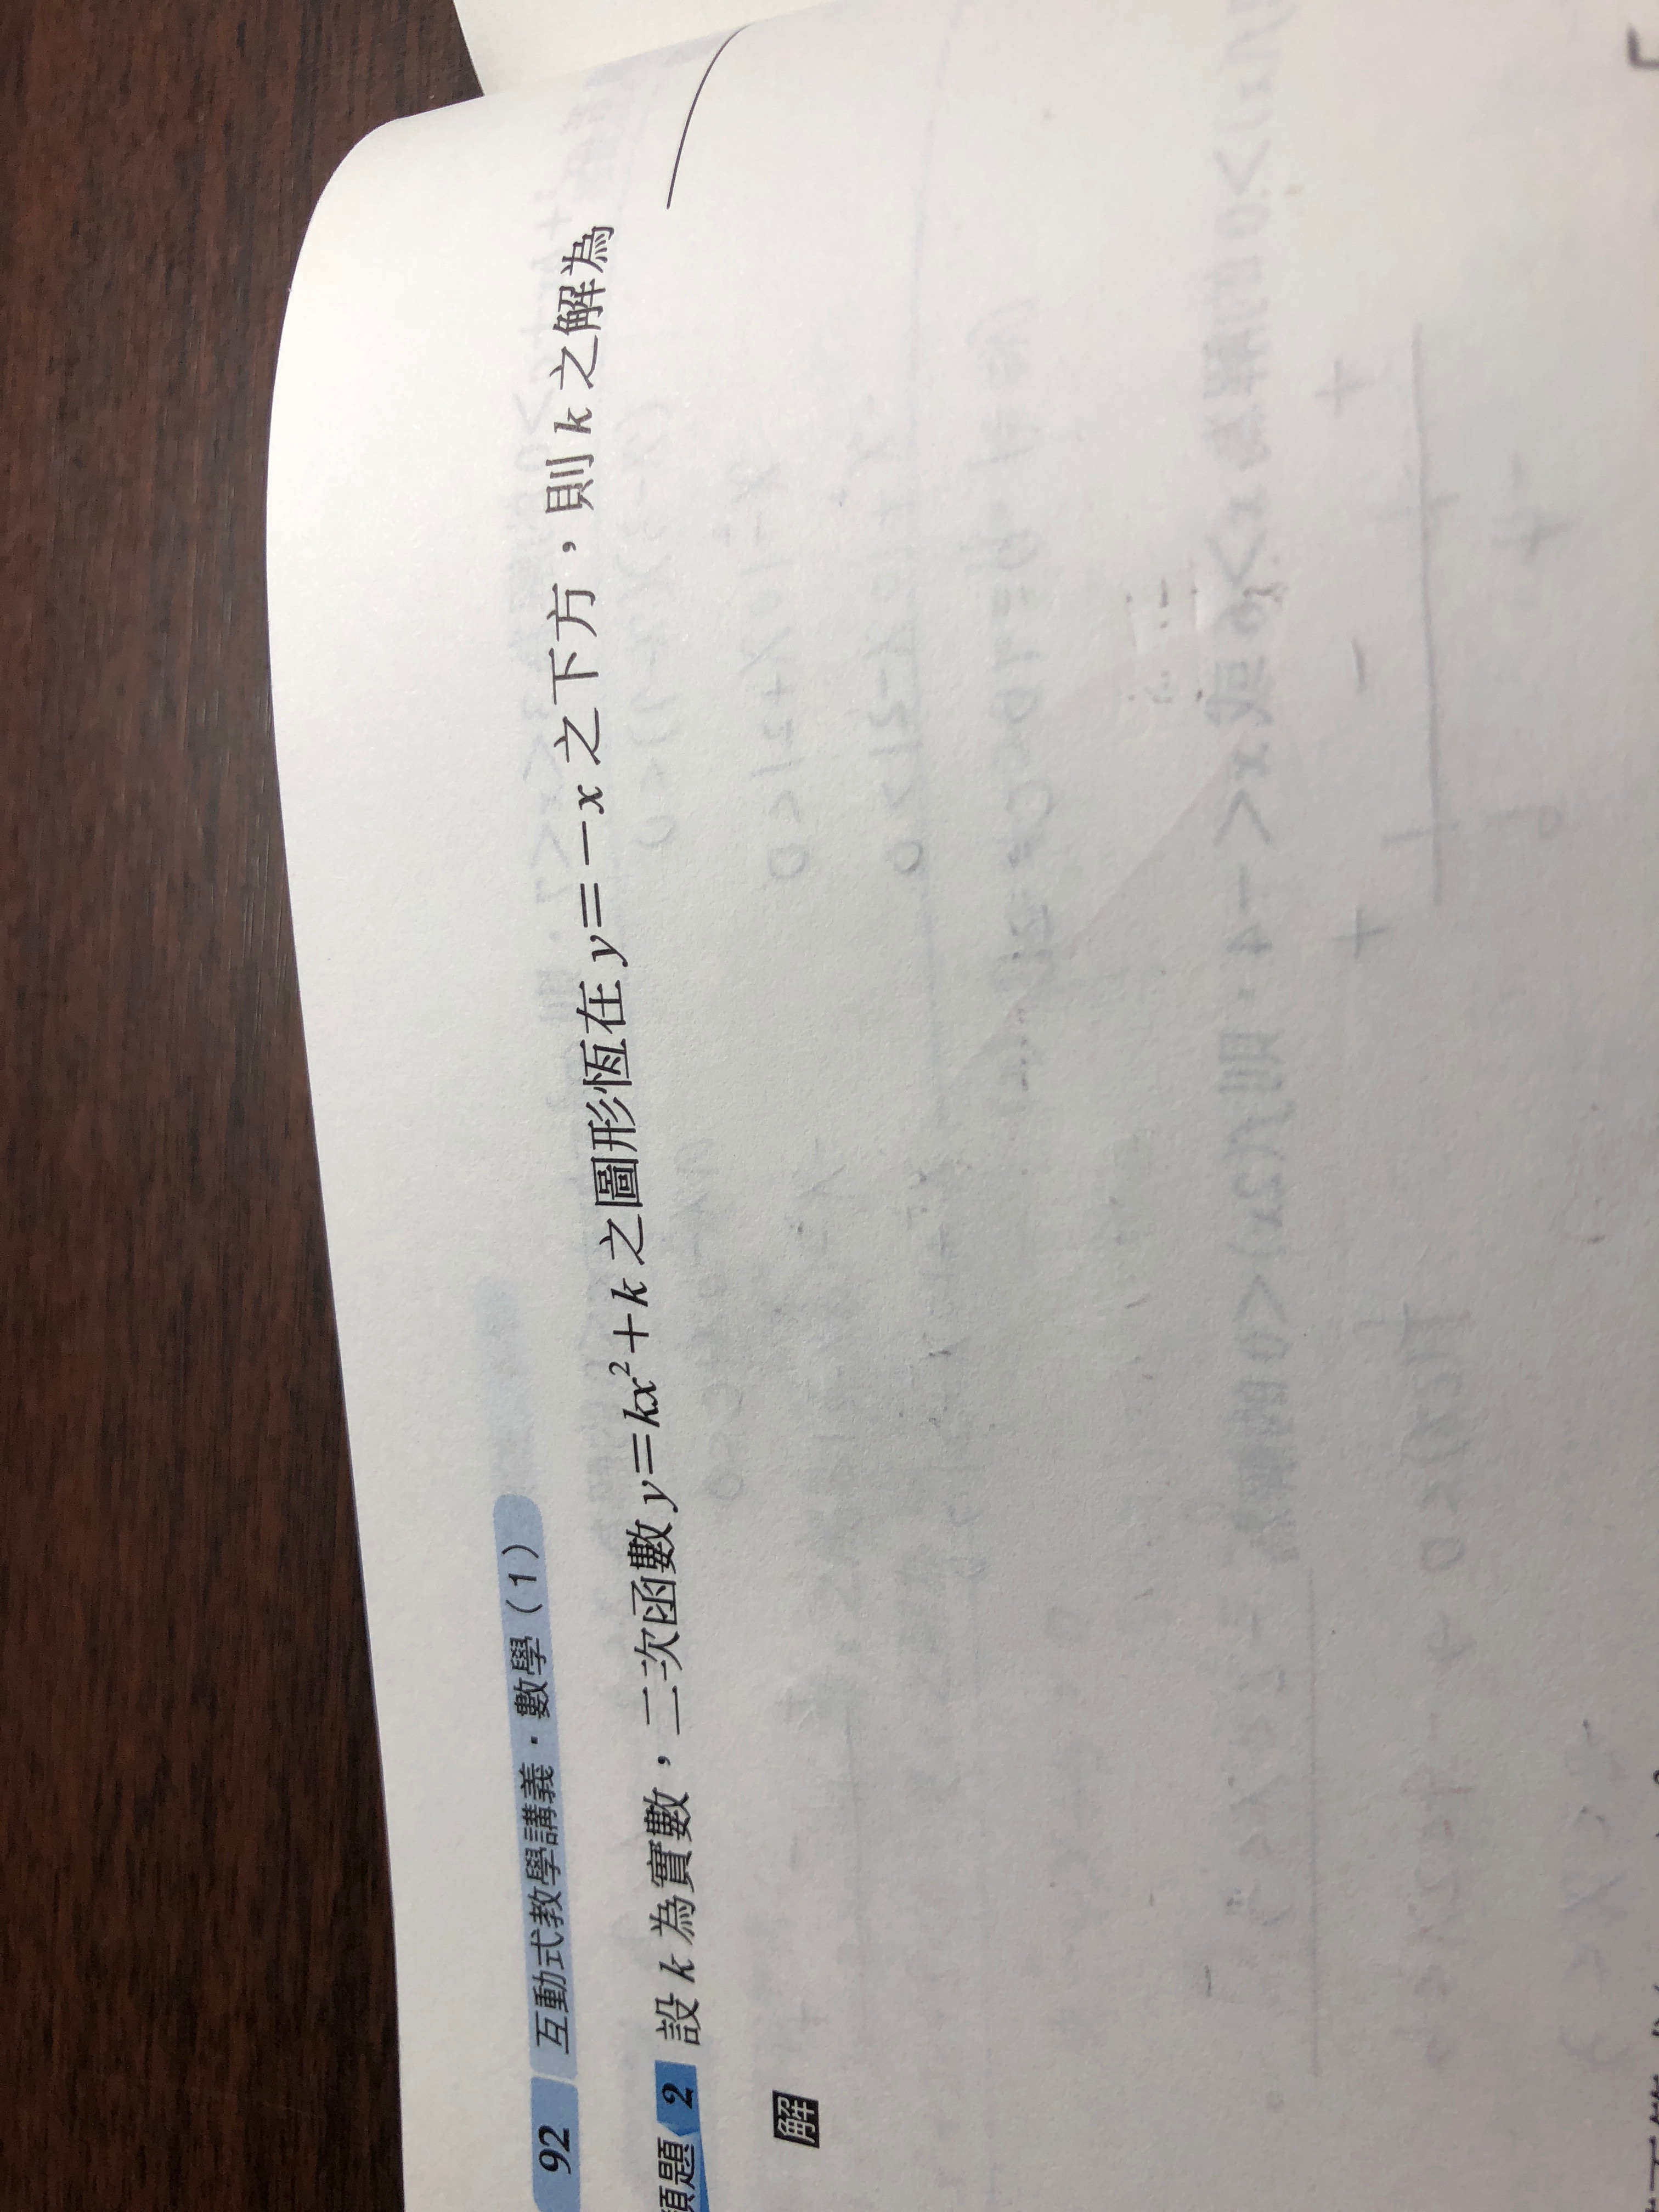 92 互動式教學講義·數學(1)
類題 2 設 k 為實數,二次函數 y=kx²+k 之圖形恆在 y=-x 之下方,則 k 之解為
解